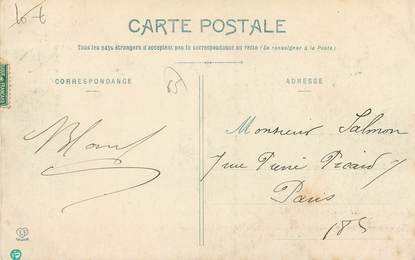 CARTE POSTALE
Tous les pays étrangers n'acceptent pas la correspondance au recto (Se renseigner à la Poste)
CORRESPONDANCE
ADRESSE
Monsieur Salmon
7 rue Pierre Picard 7
Paris
18e